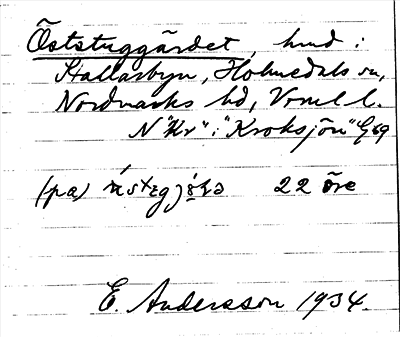 Öststuggärdet, hmd i
Stallarbyn, Holmedals sn,
Nordmarks hd, Vrml l.
N "Kr" i "Kroksjön" G 69
(pa) 22 öre
E. Andersson 1934.